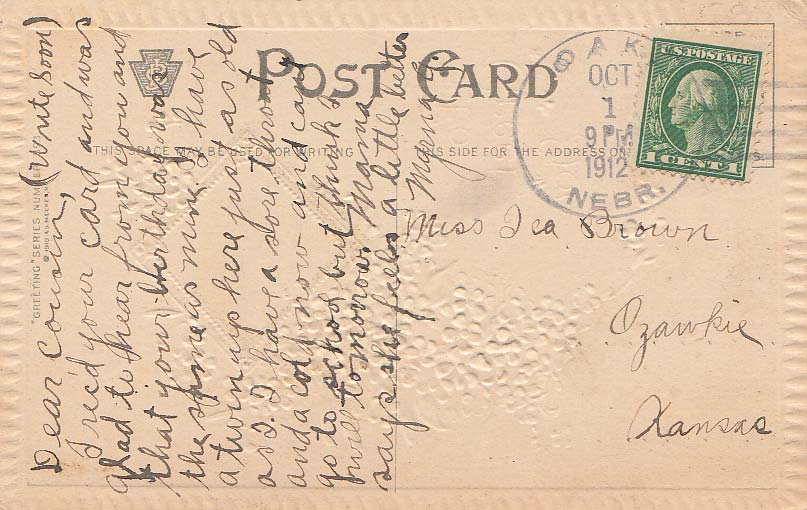 POST CARD
THIS SPACE MAY BE USED FOR WRITING
THIS SIDE FOR THE ADDRESS ONLY
"GREETING" SERIES NUMBER
© 1910 A.S. MEEKER
OAK
OCT
1
9 PM
1912
NEBR.
U.S. POSTAGE
1 CENT 1
Dear Cousin, (Write Soon)
I rec'd your card and was
glad to hear from you and
that your birthday was
the same as mine. I have
a twin up here just as old
as I. I have a sore throat
and a cold now and cant
go to school but think I
will tomorrow. Mama
says she feels a little better
Miss Iea Brown
Ozawkie
Kansas